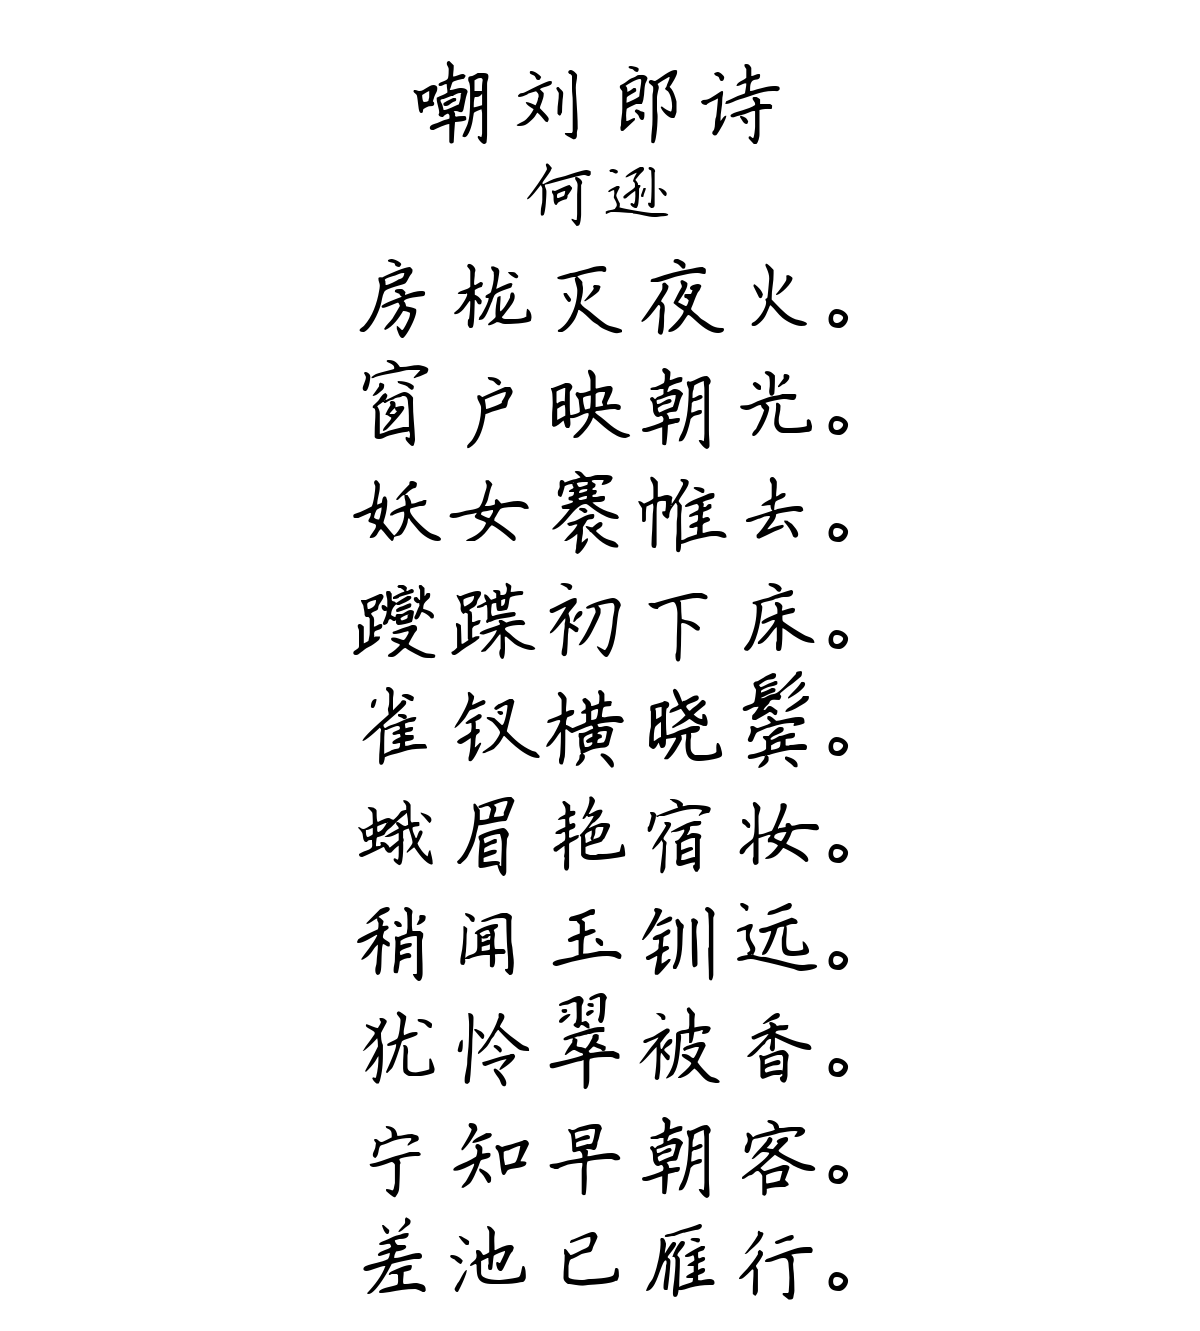 嘲刘郎诗
何逊
房栊灭夜火。
窗户映朝光。
妖女褰帷去。
躞蹀初下床。
雀钗横晓鬓。
蛾眉艳宿妆。
稍闻玉钏远。
犹怜翠被香。
宁知早朝客。
差池已雁行。